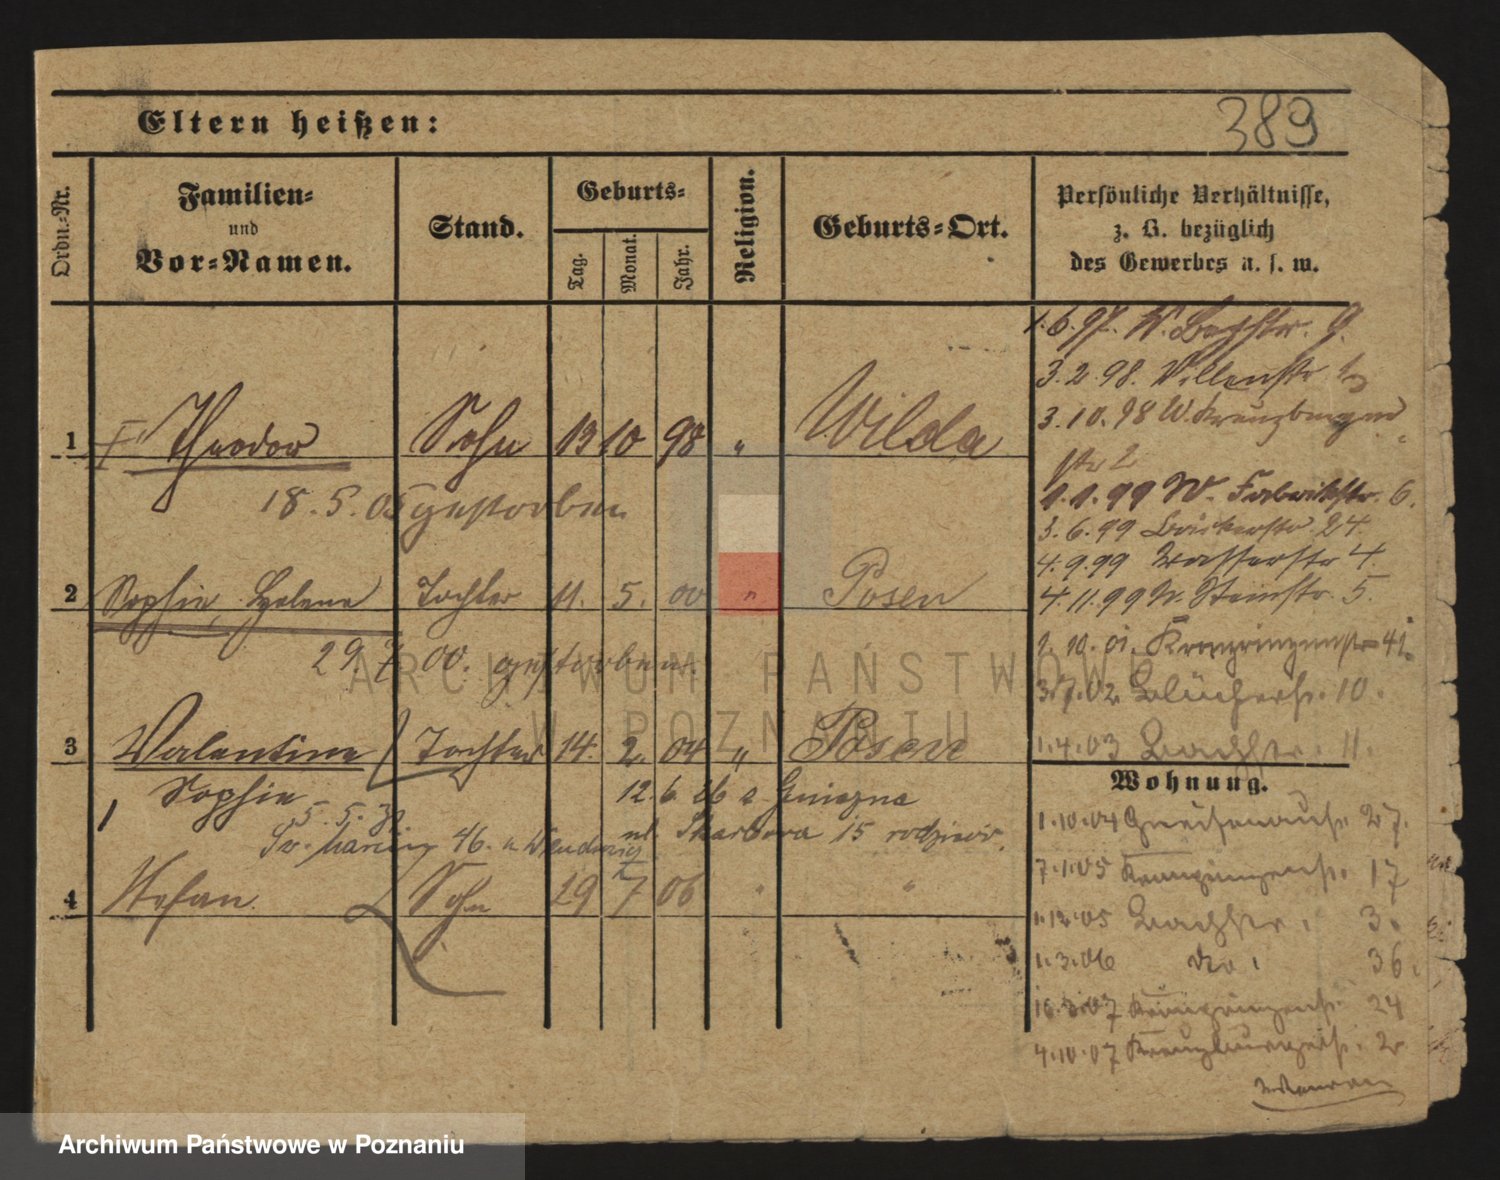 Eltern heißen:
389
Ordn.-Nr.
Familien-
und
Vor-Namen.
Stand.
Geburts-
Tag.
Monat.
Jahr.
Religion.
Geburts-Ort.
Persönliche Verhältnisse,
z. B. bezüglich
des Gewerbes u. s. w.
1.6.97. W. Bachstr. 9.
3.2.98. Willenstr
3.10.98 W. Kreuzburger
str 2
1 Theodor Sohn 13 10 98 " Wilda
18.5.05 gestorben
1.1.99 W. Fabrikstr. 6.
3.6.99 Bäckerstr. 24.
4.9.99 Wasserstr 4
4.11.99 W. Steinstr. 5.
2 Sophie, Helene Tochter 11. 5. 00 " Posen
29 7 00. gestorben.
1.10.01. Kronprinzenstr 41.
3.7.02 Blücherstr. 10.
1.4.03 Bachstr. 11.
3 Valentine Tochter 14. 2. 04 " Posen
Sophie
12.6.26 z Gniezna
5.5.
Św. Marcin 46. n
ul. Skarbowa 15 rodziców.
4 Stefan. Sohn 29 7 06 " "
Wohnung.
1.10.04 Gneisenaustr. 27.
7.1.05 Kronprinzenstr. 17
1.12.05 Bachstr. 3.
1.3.06 do. 36.
16.3.07 Kronprinzenstr. 24
4.10.07 Kreuzburgerstr. 2
ARCHIWUM PAŃSTWOWE
W POZNANIU
Archiwum Państwowe w Poznaniu